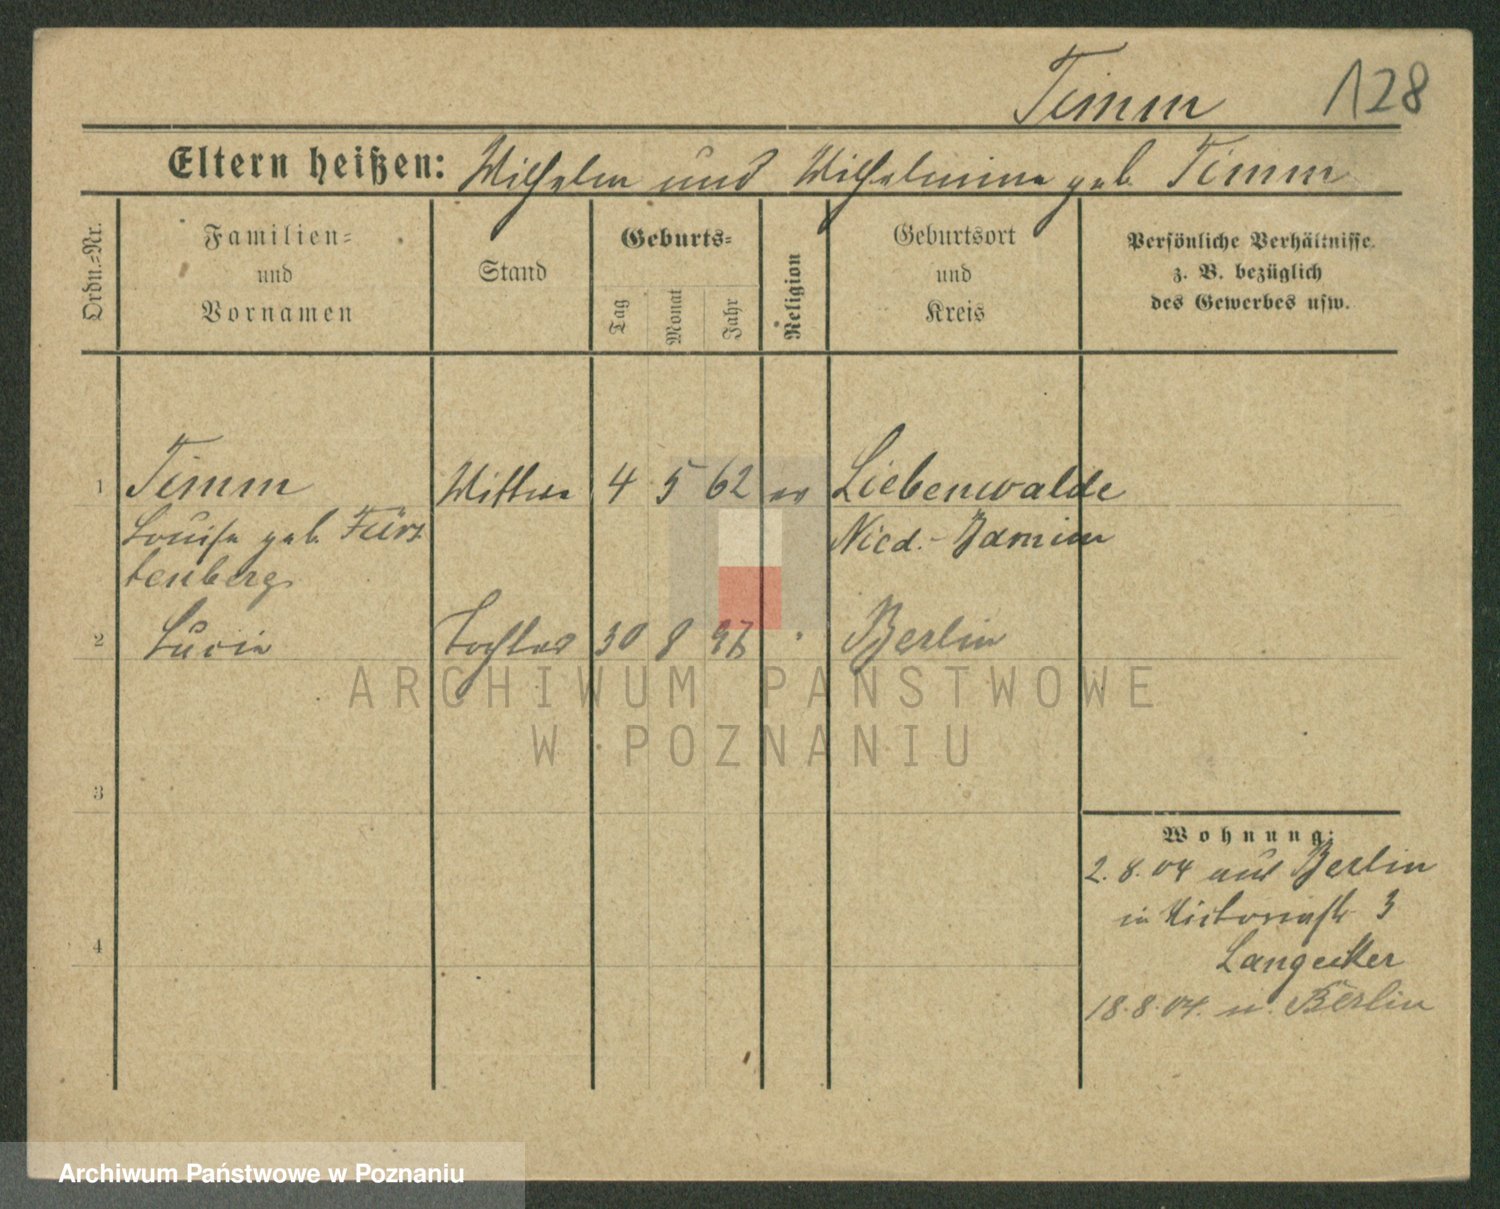 Timm 128
Eltern heißen: Wilhelm und Wilhelmine geb Timm
Ordn.=Nr.
Familien=
und
Vornamen
Stand
Geburts=
Tag
Monat
Jahr
Religion
Geburtsort
und
Kreis
Persönliche Verhältnisse
z. B. bezüglich
des Gewerbes usw.
1 Timm Wittwe 4 5 62 ev Liebenwalde
Louise geb. Fürs Nied.- Barnim
tenberg
2 Lucie Tochter 30 8 97 " Berlin
ARCHIWUM PAŃSTWOWE
W POZNANIU
3
4
Wohnung:
2.8.04 aus Berlin
in Victoriastr 3
18.8.04. n. Berlin
Archiwum Państwowe w Poznaniu